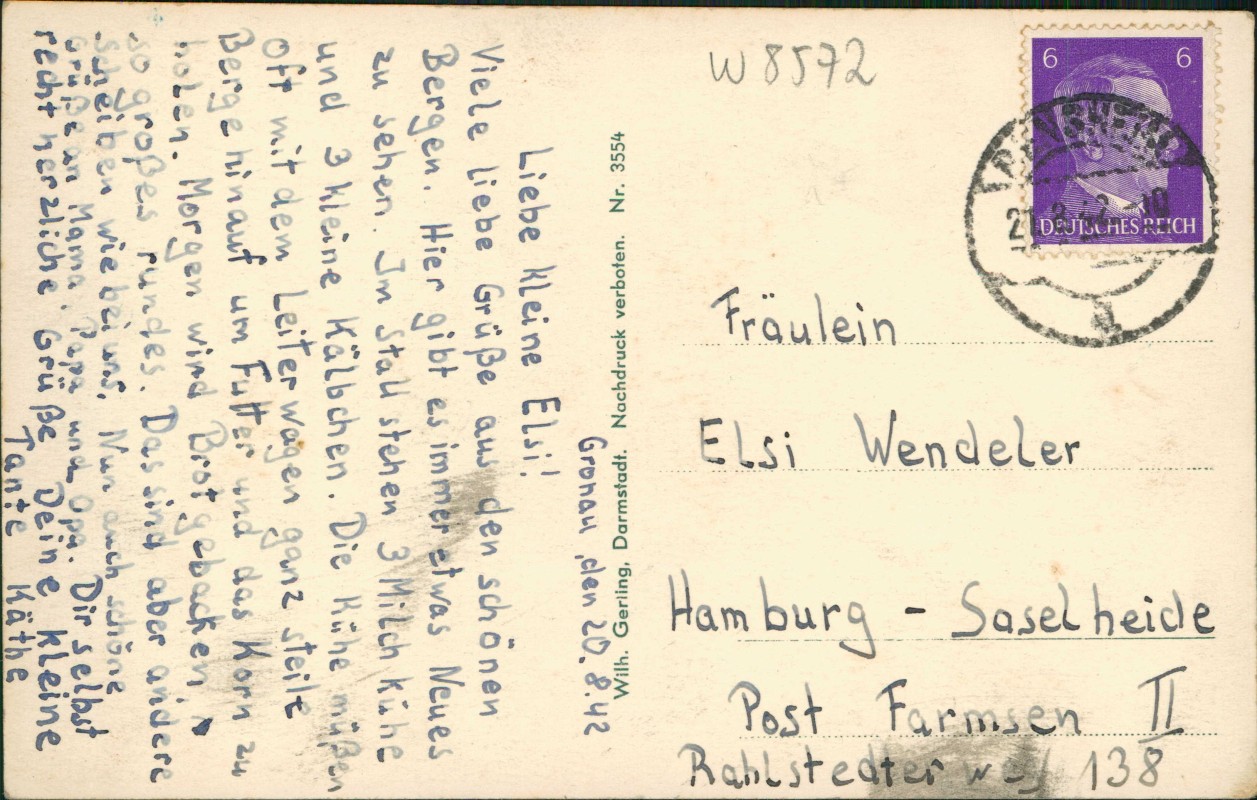 Gronau, den 20.8.42
Liebe kleine Elsi!
Viele liebe Grüße aus den schönen
Bergen. Hier gibt es immer etwas Neues
zu sehen. Im Stall stehen 3 Milchkühe
und 3 kleine Kälbchen. Die Kühe müßen
oft mit dem Leiterwagen ganz steile
Berge hinauf um Futter und das Korn zu
holen. Morgen wird Brot gebacken,
so großes rundes. Das sind aber andere
Scheiben wie bei uns. Nun auch schöne
Grüße an Mama, Papa und Opa. Dir selbst
recht herzliche Grüße Deine kleine
Tante Käthe
Wilh. Gerling, Darmstadt. Nachdruck verboten. Nr. 3554
W 8572
6 6
DEUTSCHES REICH
BENSHEIM
21.8.42.-10
a
Fräulein
Elsi Wendeler
Hamburg - Saselheide
Post Farmsen II
Rahlstedter weg 138